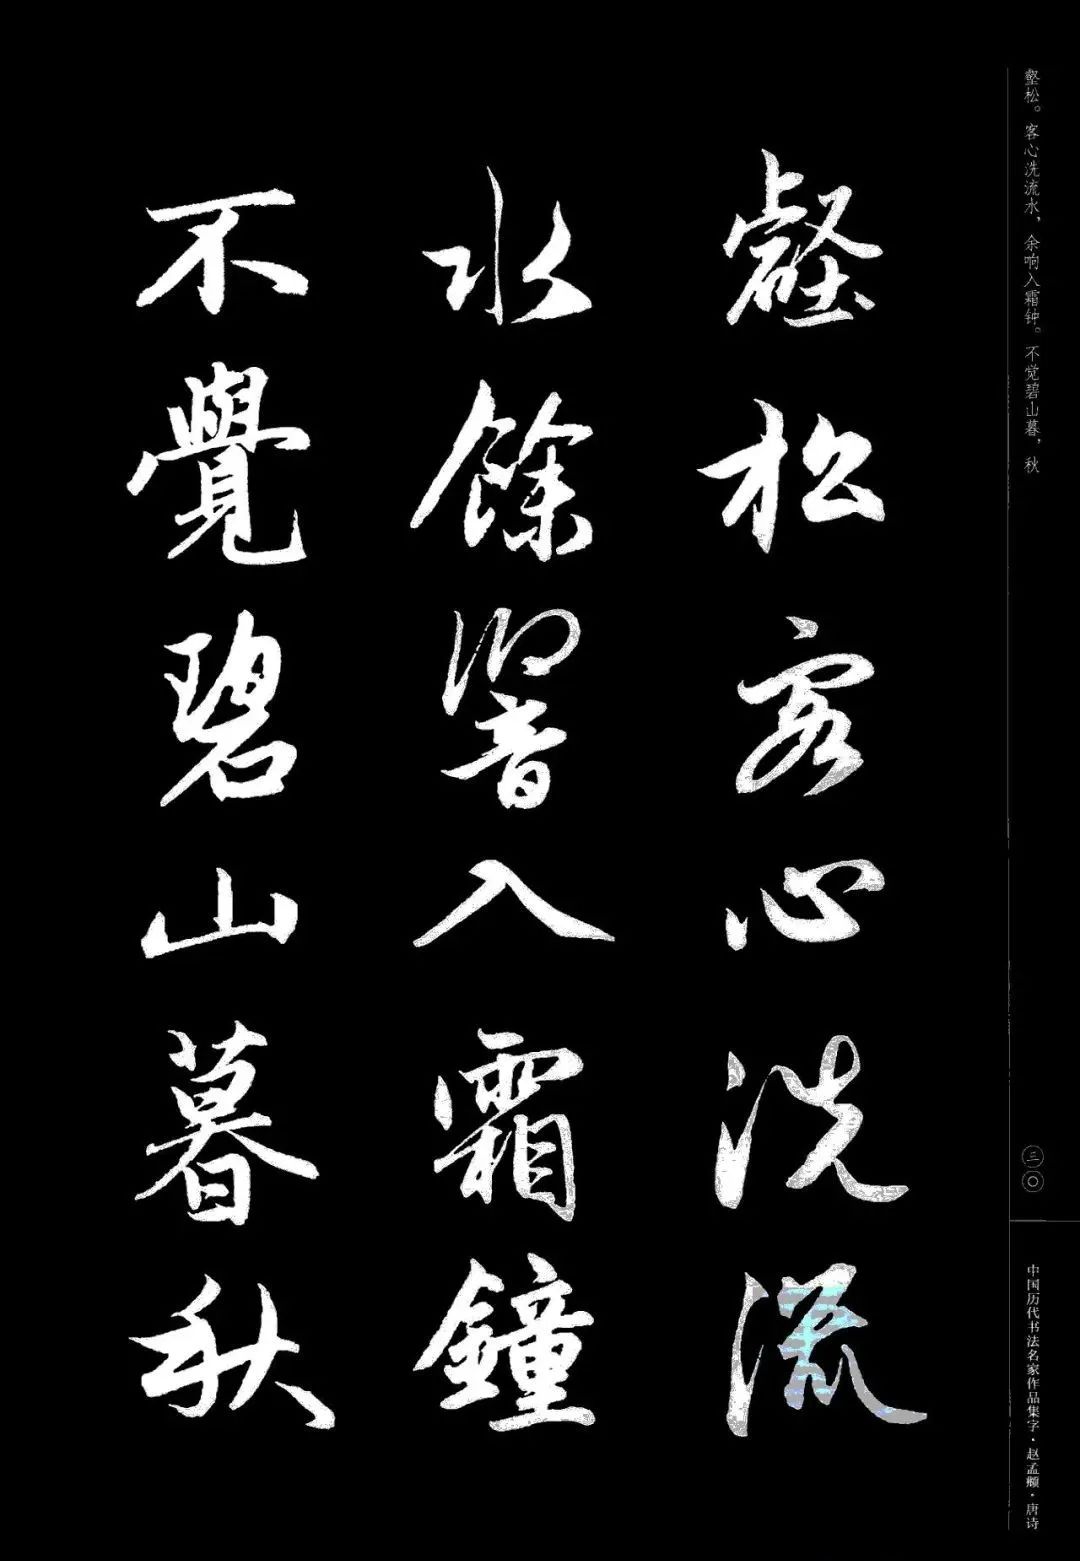 壑松。客心洗流水，余响入霜钟。不觉碧山暮，秋
壑松客心洗流
水餘響入霜鐘
不覺碧山暮秋
三〇
中国历代书法名家作品集字·赵孟頫·唐诗